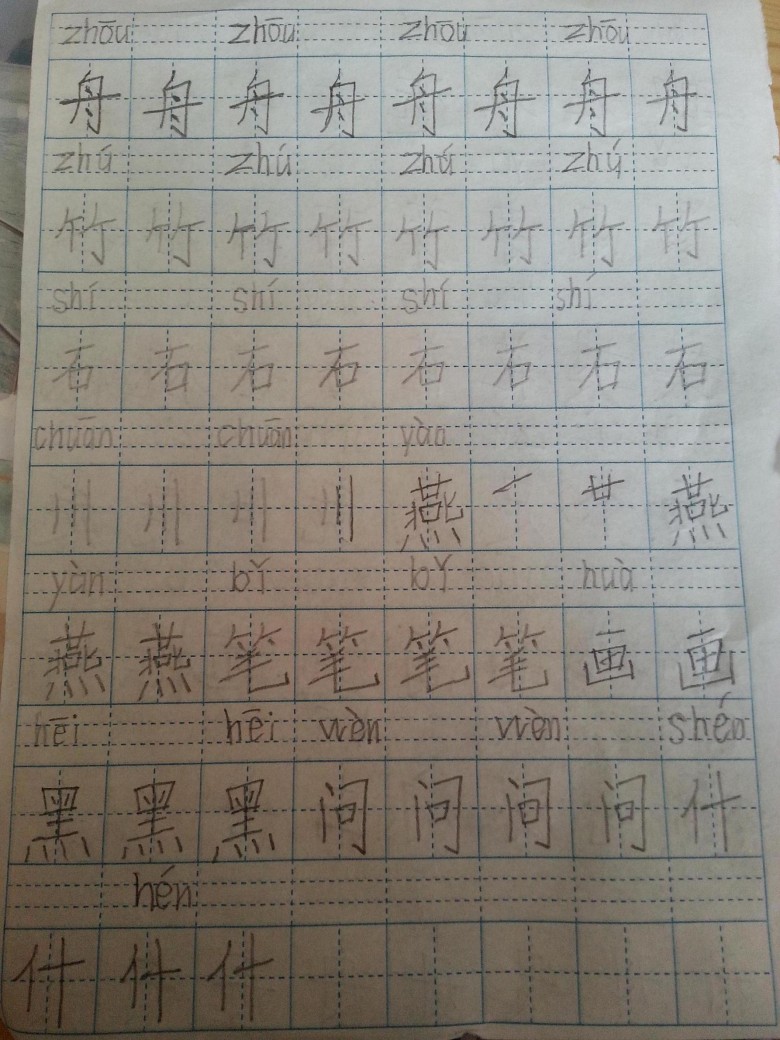 zhōu zhōu zhōu zhōu
舟 舟 舟 舟 舟 舟 舟 舟
zhú zhú zhú zhú
竹 竹 竹 竹 竹 竹 竹 竹
shí shí shí shí
石 石 石 石 石 石 石 石
chuān chuān yàn
川 川 川 川 燕 燕
yàn bǐ bǐ huà
燕 燕 笔 笔 笔 笔 画 画
hēi hēi wèn wèn shén
黑 黑 黑 问 问 问 问 什
hén
什 什 什